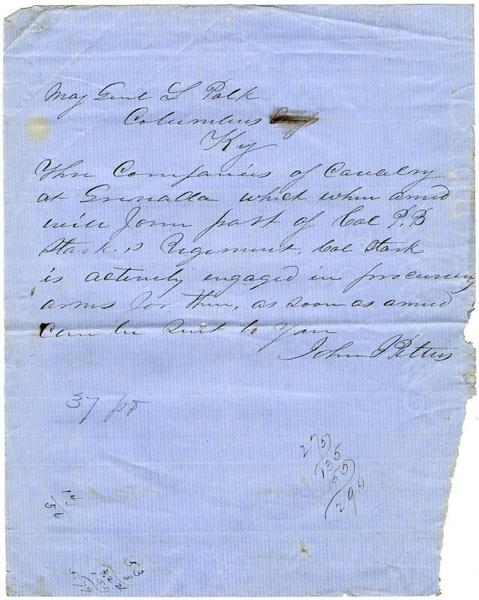 Maj Genl L Polk
Columbus
Ky
The Companies of Cavalry
at Grenada which when armed
will form part of Col P.B
Starks Regiment. Col Stark
is actively engaged in procuring
arms for them, as soon as armed
can be sent to you
John J Pettus
37 pd
275
135